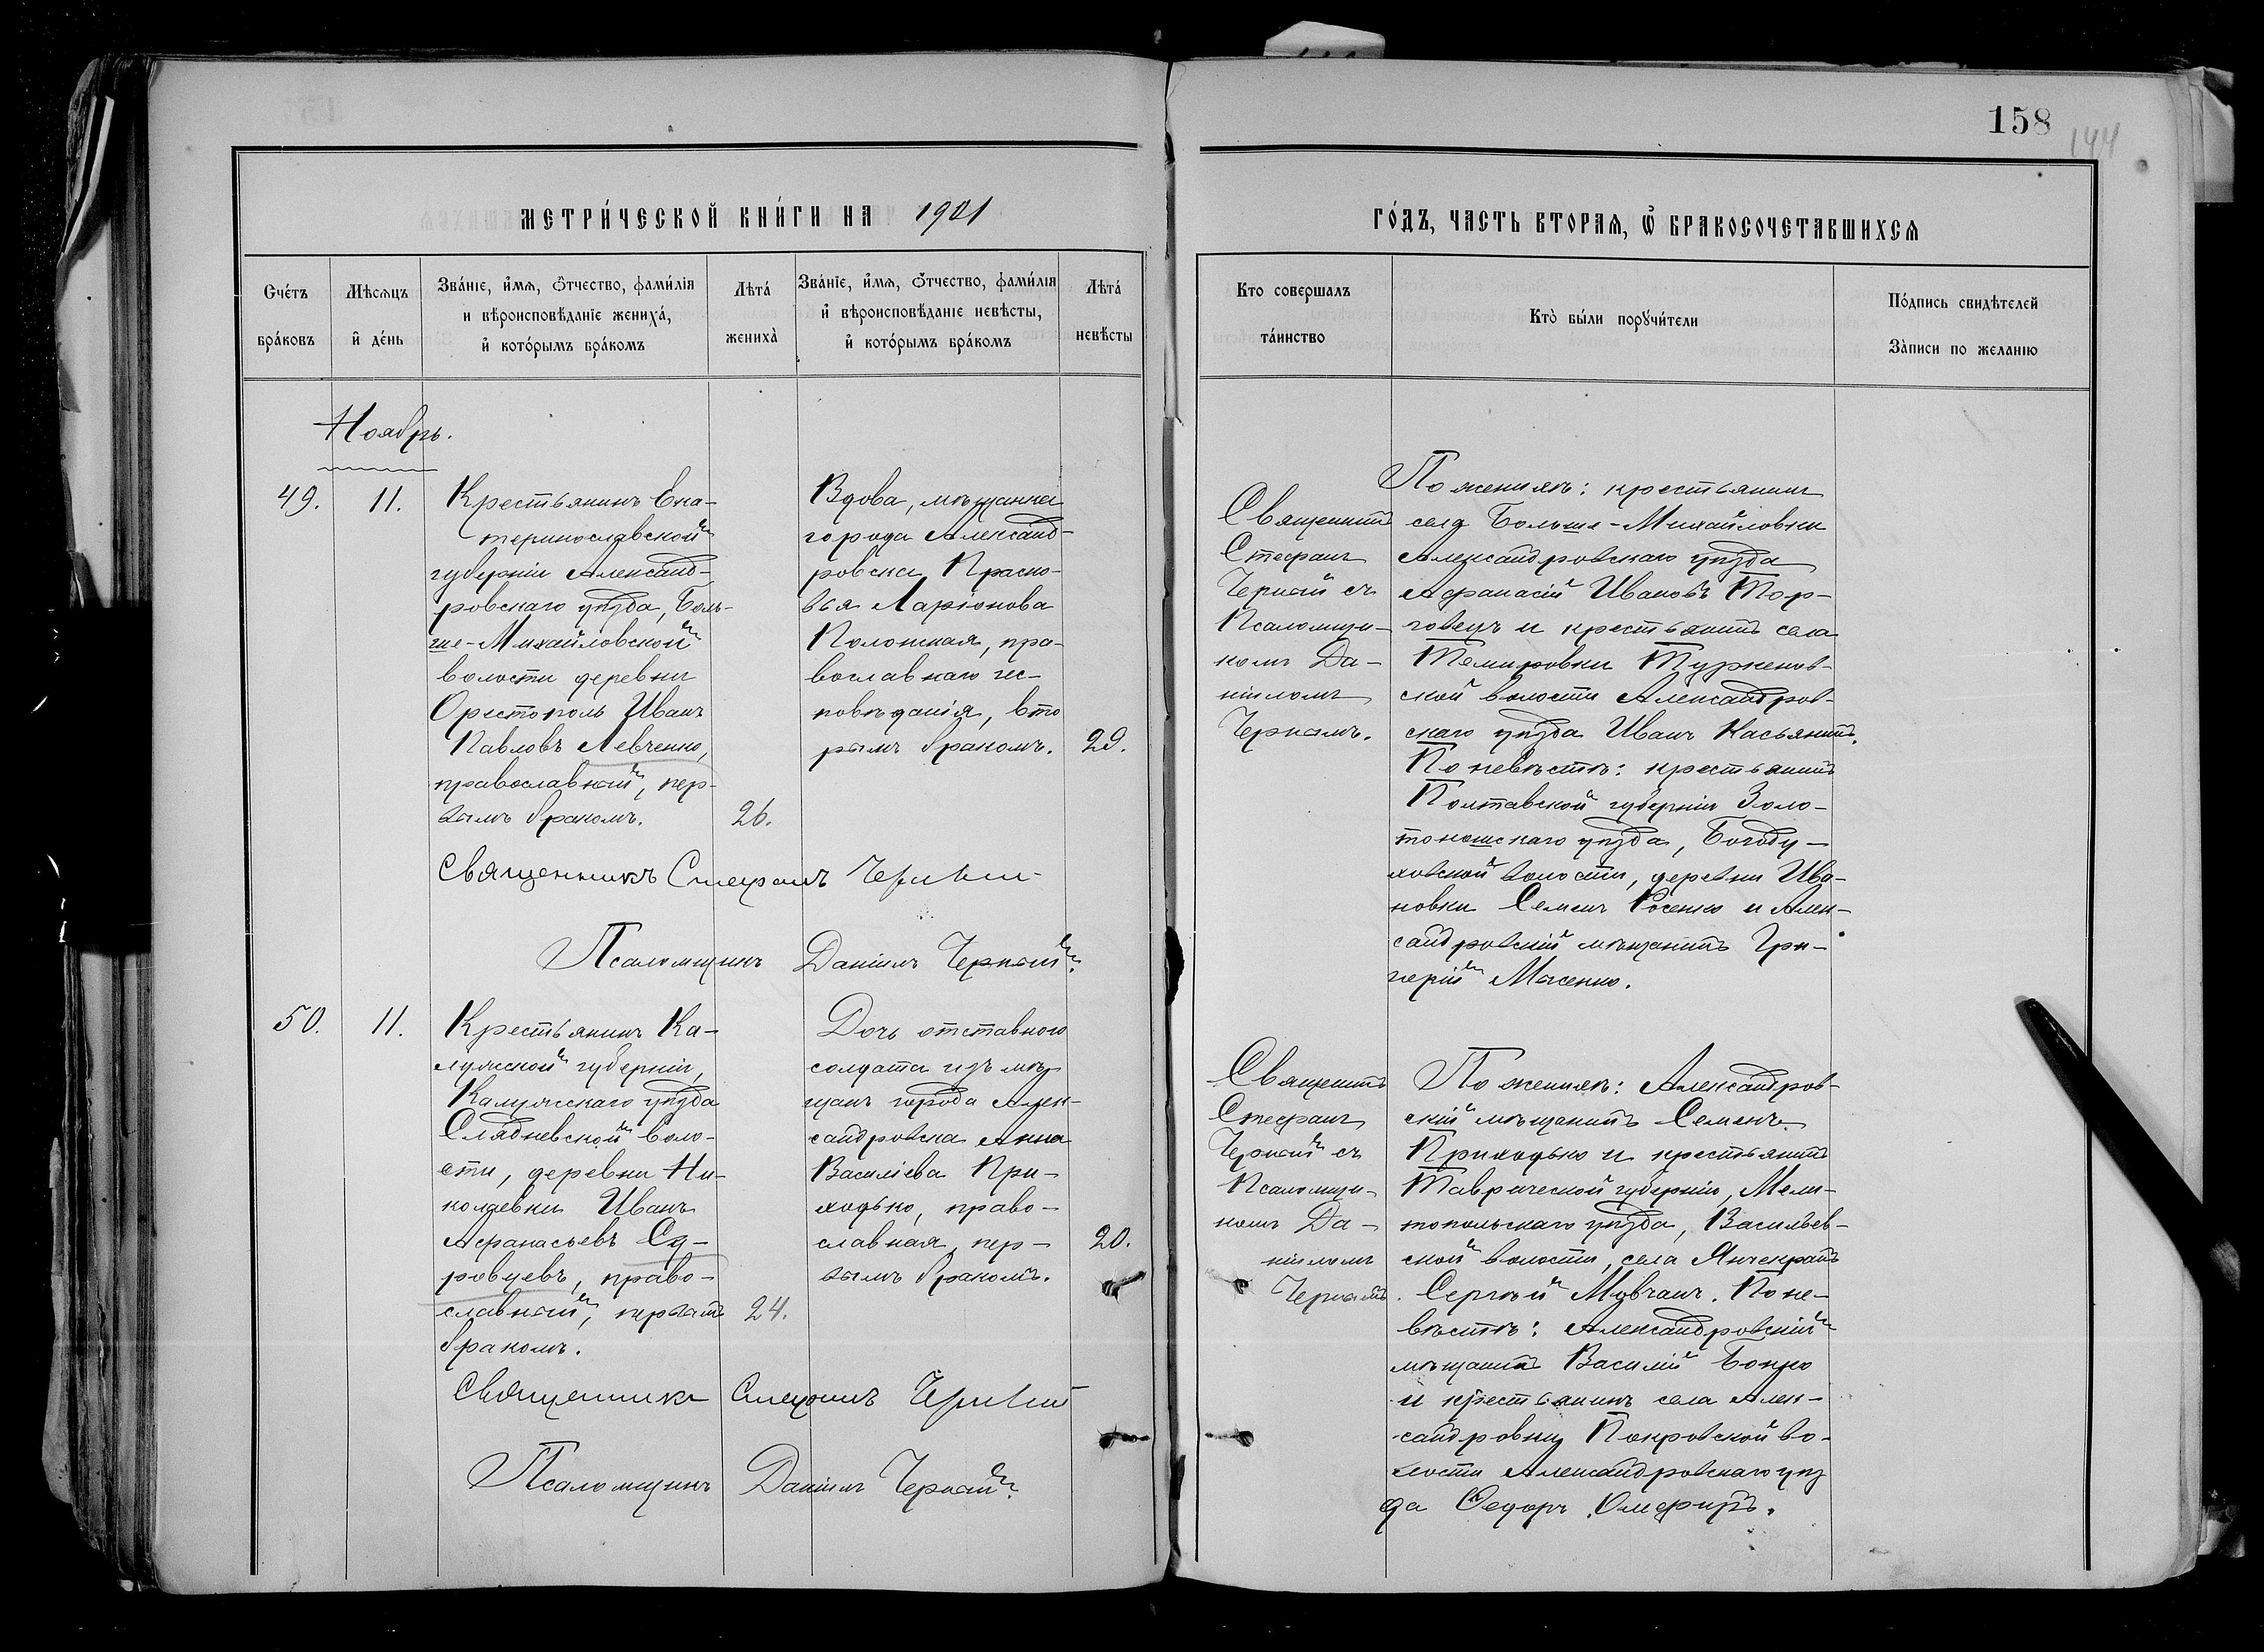 158
144
МЕТРИ́ЧЕСКОЙ КНИ́ГИ НА 1901
ГО́ДЪ, ЧАСТЬ ВТОРАѦ, Ѡ҆ БРАКОСОЧЕТАВШИХСѦ
Сче́тъ бра́ковъ
Мѣ́сѧцъ и҆ де́нь
Зва́нїе, и҆́мѧ, ѻ҆́тчество, фами́лїѧ
и вѣроисповѣ́данїе жениха̀,
и҆ кото́рымъ бра́комъ
Лѣта̀ жениха̀
Зва́нїе, и҆́мѧ, ѻ҆́тчество, фами́лїѧ
и҆ вѣроисповѣ́данїе невѣ́сты,
и҆ кото́рымъ бра́комъ
Лѣта̀ невѣ́сты
Кто совершалъ
та́инство
Кто̀ бы́ли порꙋчи́тели
По́дпись свидѣ́телей
За̀писи по желанїю
Ноябрь.
49.
11.
Крестьянинъ Ека-
теринославской
губерніи Александ-
ровскаго уѣзда, Боль-
ше-Михайловской
волости деревни
Орестополь Иванъ
Павловъ Левченко,
православный, пер-
вымъ бракомъ.
26.
Вдова, мѣщанка
города Александ-
ровска Праско-
вья Ларіонова
Полонская, пра-
вославнаго ис-
повѣданія, вто
рымъ бракомъ.
29.
Священникъ Стефанъ Черный
Псаломщикъ Даніилъ Черный.
Священникъ
Стефанъ
Черный съ
Псаломщи-
комъ Да-
ніиломъ
Чернымъ.
По женихѣ: крестьянинъ
села Больше-Михайловки
Александровскаго уѣзда
Афанасій Ивановъ Тор-
говецъ и крестьянинъ села
Темировки Туркенов-
ской волости Александров-
скаго уѣзда Иванъ Касьянинъ.
По невѣстѣ: крестьянинъ
Полтавской губерніи Золо-
тоношскаго уѣзда, Богоду-
ховской волости, деревни Ива-
новки Семенъ Косенко и Алек-
сандровскій мѣщанинъ Гри-
горій Мысенко.
50.
11.
Крестьянинъ Ка-
лужской губерніи,
Калужскаго уѣзда
Слядневской воло-
сти, деревни Ни-
колаевки Иванъ
Афанасьевъ Су-
ровцевъ, право-
славный, первымъ
бракомъ.
24.
Дочь отставного
солдата изъ мѣ-
щанъ города Алек-
сандровска Анна
Василіева При-
ходько, право-
славная, пер-
вымъ бракомъ.
20.
Священникъ Стефанъ Черный
Псаломщикъ Даніилъ Черный.
Священникъ
Стефанъ
Черный съ
Псаломщи-
комъ Да-
ніиломъ
Чернымъ.
По женихѣ: Александров-
скій мѣщанинъ Семенъ
Приходько и крестьянинъ
Таврической губерніи, Мели-
топольскаго уѣзда, Васильев-
ской волости, села Янчекракъ
Сергѣй Мовчанъ. По не-
вѣстѣ: Александровскій
мѣщанинъ Василій
и крестьянинъ села Алек-
сандровки Покровской во-
лости Александровскаго уѣз
да Ѳедоръ